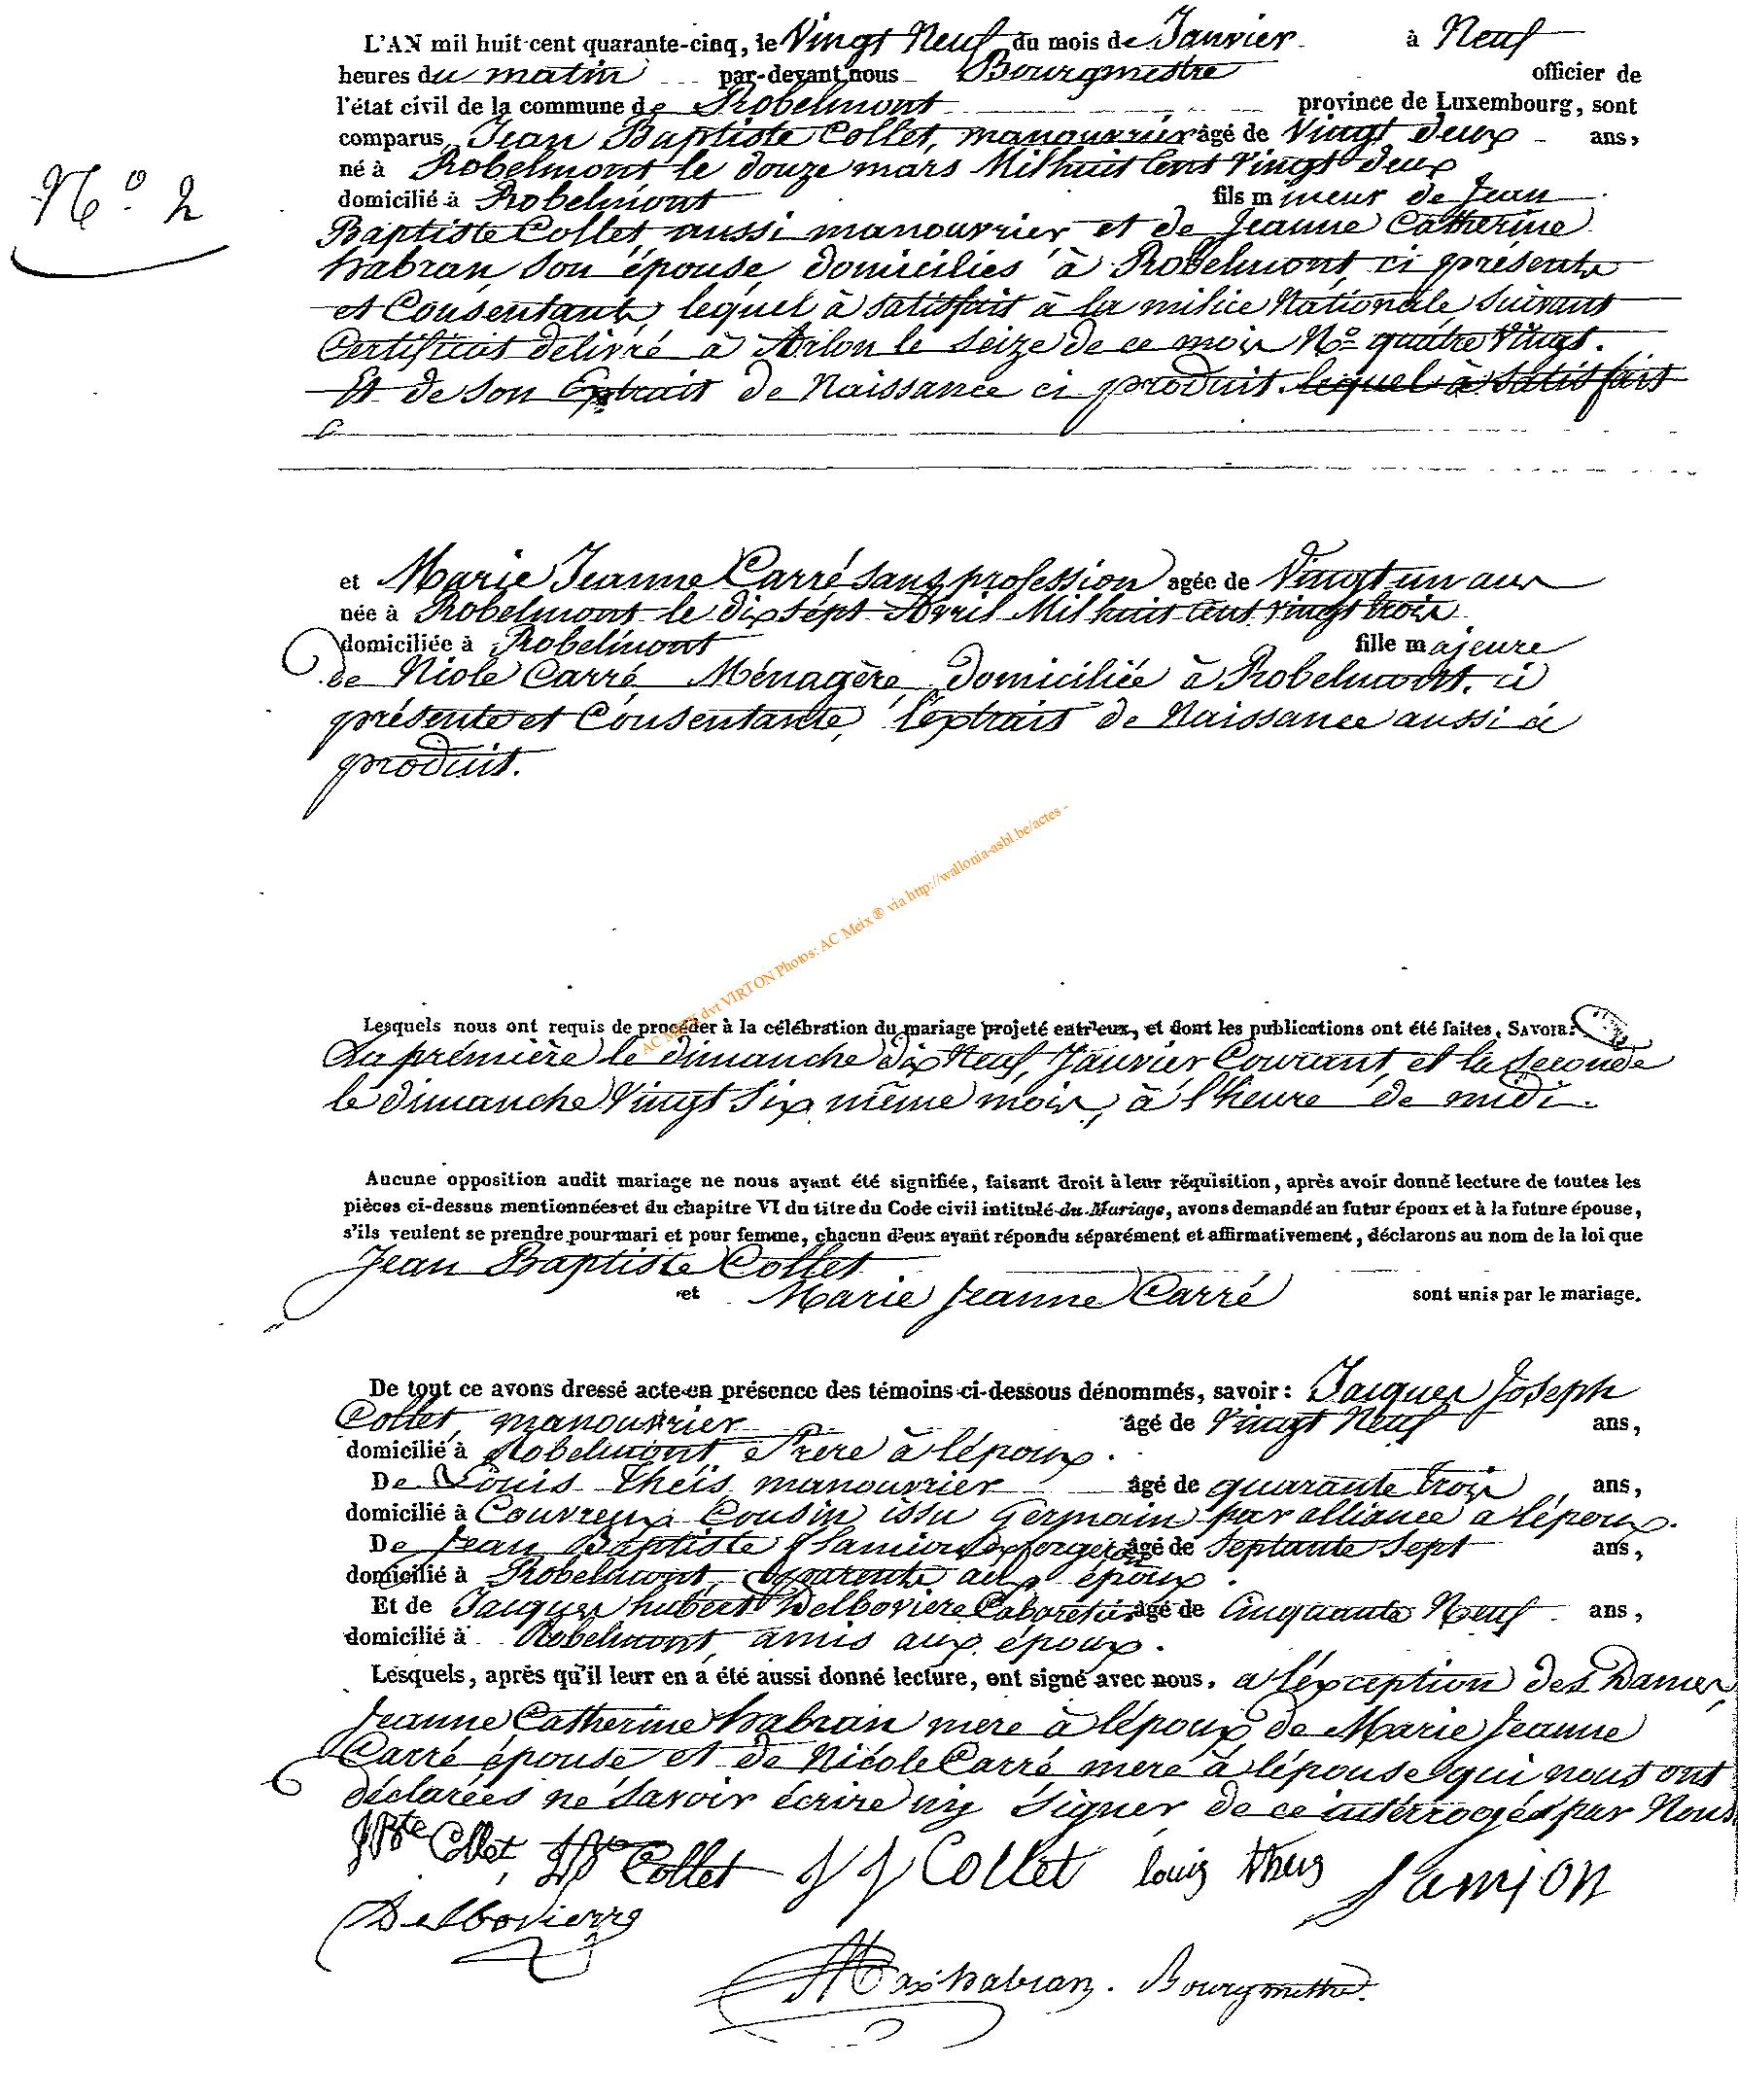 L'AN mil huit cent quarante-cinq, le Vingt Neuf du mois de Janvier à Neuf
heures du matin par-devant nous Bourgmestre officier de
l'état civil de la commune de Robelmont province de Luxembourg, sont
comparus Jean Baptiste Collet, manouvrier âgé de Vingt deux ans,
né à Robelmont le douze mars Mil huit Cent Vingt deux
N.o 2
domicilié à Robelmont fils mineur de Jean
Baptiste Collet, aussi manouvrier et de Jeanne Catherine
habran, son épouse, domiciliés à Robelmont, ci présents
et Consentants, lequel à satisfait à la milice Nationale, suivant
Certificat délivré à Arlon le seize de ce mois No quatre Vingt.
Et de son Extrait de Naissance ci produit. lequel à satisfait
et Marie Jeanne Carré sans profession agée de Vingt un ans
née à Robelmont le dix sept Avril Mil huit cent vingt trois
domiciliée à Robelmont fille majeure
de Nicole Carré, Ménagère, domiciliée à Robelmont. ci
présente et Consentante, l'extrait de Naissance aussi ci
produit.
AC MEIX dvt VIRTON Photos: AC Meix ® via http://wallonia-asbl.be/actes -
Lesquels nous ont requis de procéder à la célébration du mariage projeté entr'eux, et dont les publications ont été faites, SAVOIR:
La première le dimanche dix Neuf, Janvier Courant, et la seconde
le dimanche Vingt Six même mois, à l'heure de midi.
Aucune opposition audit mariage ne nous ayant été signifiée, faisant droit à leur réquisition, après avoir donné lecture de toutes les
pièces ci-dessus mentionnées et du chapitre VI du titre du Code civil intitulé du Mariage, avons demandé au futur époux et à la future épouse,
s'ils veulent se prendre pour mari et pour femme, chacun d'eux ayant répondu séparément et affirmativement, déclarons au nom de la loi que
Jean Baptiste Collet
et Marie Jeanne Carré sont unis par le mariage.
De tout ce avons dressé acte en présence des témoins ci-dessous dénommés, savoir: Jacques Joseph
Collet, manouvrier âgé de Vingt Neuf ans,
domicilié à Robelmont, frere à l'époux.
De Louis Theis manouvrier âgé de quarante trois ans,
domicilié à Couvreux Cousin issu Germain par alliance a l'époux.
De Jean Baptiste Samion forgeron âgé de Septante Sept ans,
domicilié à Robelmont, aux époux.
Et de Jacques hubert Delboviere Cabaretier âgé de Cinquante Neuf ans,
domicilié à Robelmont, amis aux époux.
Lesquels, après qu'il leur en a été aussi donné lecture, ont signé avec nous. a l'éxception des Dames,
Jeanne Catherine habran mere à l'époux, de Marie Jeanne
Carré épouse et de Nicole Carré mere à l'épouse qui nous ont
déclarées ne savoir écrire ny signer, de ce intérrogés par Nous.
JBte Collet, JBte Collet J J Collet louis theis Samion
Delbovierre
habran. Bourgmestre.